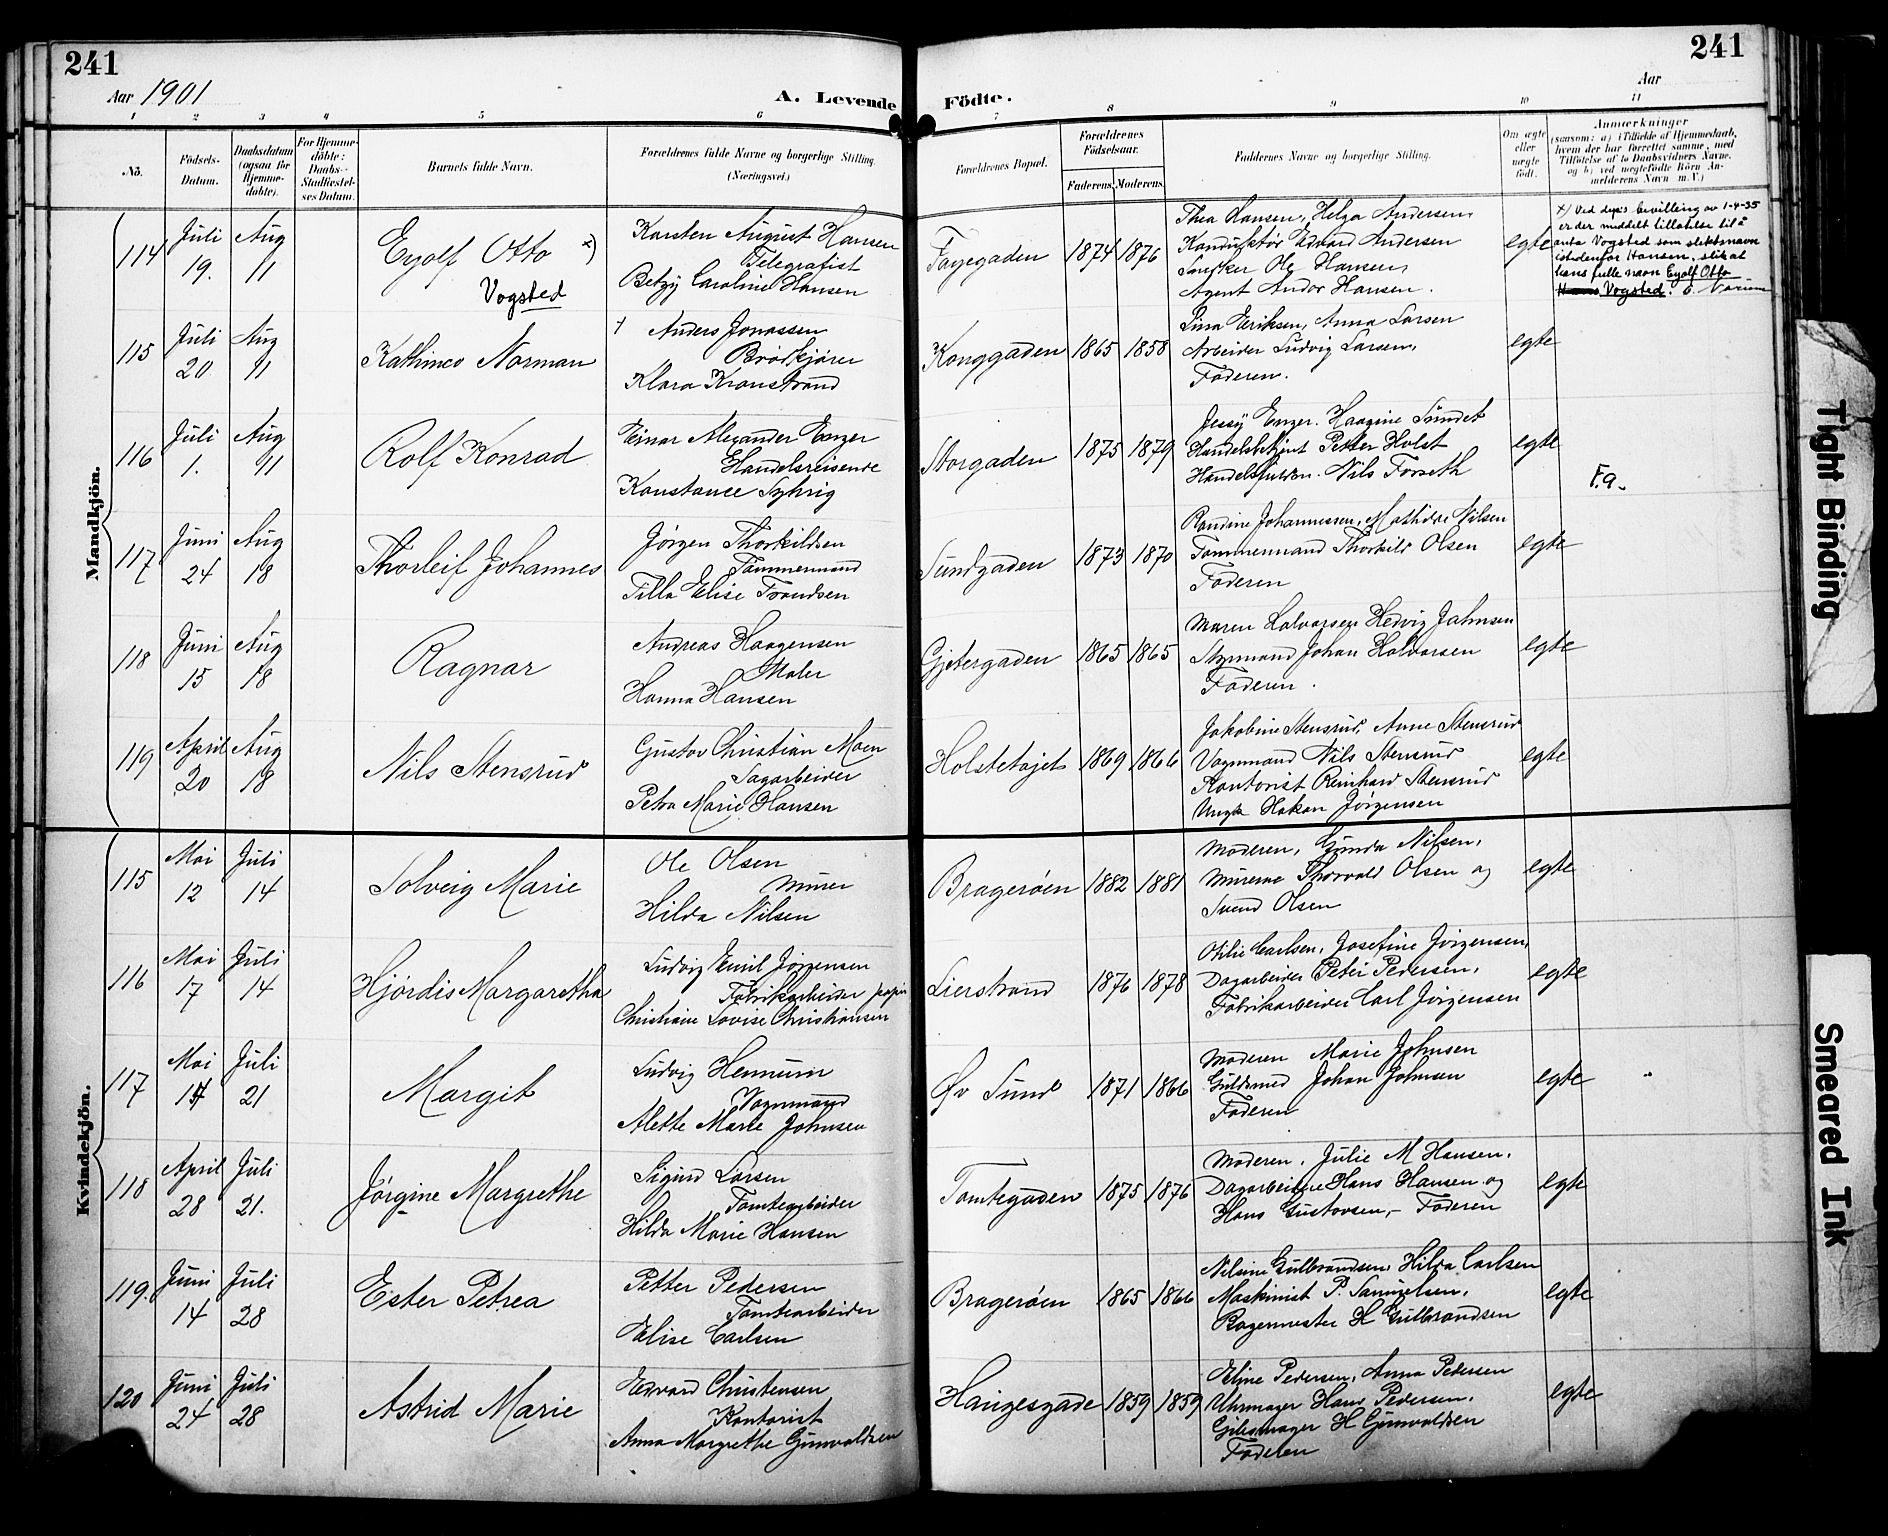 241
241
Aar 1901
A. Levende
Födte.
Aar
1 2 3 4 5 6 7 8 9 10 11
No.
Födsels-
Datum.
Daabsdatum
(ogsaa for
Hjemme-
döbte).
For Hjemme-
döbte:
Daabs-
Stadfæstel-
ses Datum.
Barnets fulde Navn.
Forældrenes fulde Navne og borgerlige Stilling.
(Næringsvei.)
Forældrenes Bopæl.
Forældrenes
Födselsaar.
Faderens. Moderens.
Faddernes Navne og borgerlige Stilling.
Om ægte
eller
uægte
födt.
Anmærkninger
(saasom: a) i Tilfælde af Hjemmedaab,
hvem der har forrettet samme, med
Tilföielse af to Daabsvidners Navne,
og b) ved uægtefödte Börn An-
melderens Navn m. V.)
Mandkjön.
114 Juli 19. Aug 11
Eyolf Otto x)
Vogsted
Karsten August Hansen
Telegrafist
Betzy Caroline Hansen
Fayegaden 1874 1876
Thea Hansen, Helga Andersen,
Konduktør Edvard Andersen
Ole Hansen,
Agent Andor Hansen.
egte
x) Ved dep's bevilling av 1-4-35
er der meddelt tillatelse til å
anta Vogsted som slektsnavn
istedenfor Hansen, slik at
hans fulle navn Eyolf Otto
Vogsted.
115 Juli 20 Aug 11
Kathinco Norman
+ Anders Jonassen
Brødkjører
Klara Kronstrand
Konggaden 1865 1858
Lina Eriksen, Anna Larsen
Arbeider Ludvig Larsen,
Faderen.
egte
116 Juli 1. Aug 11
Rolf Konrad
Einar Alexander Enger
Handelsreisende
Konstance Syhrig
Storgaden 1875 1879
Jessy Enger. Haagine Sundet
Handelsbetjent Petter Holst
Nils Forseth
egte
F.a.
117 Juni 24 Aug 18
Thorleif Johannes
Jørgen Thorkildsen
Tømmermand
Tilla Elise Trondsen
Sundgaden 1873 1870
Randine Johannessen, Mathilde Nilsen
Tømmermand Thorkild Olsen
Faderen
egte
118 Juni 15 Aug 18
Ragnar
Andreas Haagensen
Maler
Hanna Hansen
Gjetergaden 1865 1865
Maren Halvorsen Hedvig Jahnsen
Styrmand Johan Halvorsen
Faderen.
egte
119 April 20 Aug 18
Nils Stensrud
Gustav Christian Moen
Sagarbeider
Petra Marie Hansen
Holstetøjet 1869 1866
Jakobine Stensrud, Anne Stensrud
Vognmand Nils Stensrud
Kontorist Reinhard Stensrud
Ungk Hakon Jørgensen
egte
Kvindekjön.
115 Mai 12 Juli 14
Solveig Marie
Ole Olsen
Murer
Hilda Nilsen
Bragerøen 1882 1881
Moderen, Gunda Nilsen,
Murerne Thorvald Olsen og
Svend Olsen
egte
116 Mai 17 Juli 14
Hjørdis Margaretha
Ludvig Emil Jørgensen
Fabrikarbeider papir
Christiane Lovise Christiansen
Lierstrand 1876 1878
Otilie Carlsen, Josefine Jørgensen,
Dagarbeider Peter Pedersen,
Fabrikarbeider Carl Jørgensen
egte
117 Mai Juli 21
Margit
Ludvig Hennum
Vognmand
Alette Marie Johnsen
Øv Sund 1871 1866
Moderen Marie Johnsen
Guldsmed Johan Johnsen
Faderen
egte
118 April 28 Juli 21.
Jørgine Margrethe
Sigurd Larsen
Tomtearbeider
Hilda Marie Hansen
Tomtegaden 1875 1876
Moderen, Julie M Hansen,
Dagarbeidere Hans Hansen og
Hans Gustavsen, - Faderen
egte
119. Juni 14 Juli 28
Ester Petrea
Petter Pedersen
Tomtearbeider
Elise Carlsen
Bragerøen 1865 1866
Nilsine Gulbrandsen, Hilda Carlsen
Maskinist P. Samuelsen,
Bagermester H Gulbrandsen
egte
120 Juni 24 Juli 28
Astrid Marie
Edvard Christensen
Kontorist
Anna Margrethe Gunvaldsen
Haugesgade 1859 1859
Eline Pedersen, Anna Pedersen
Uhrmager Hans Pedersen,
H Gunvaldsen
Faderen
egte
Tight Binding
Smeared Ink